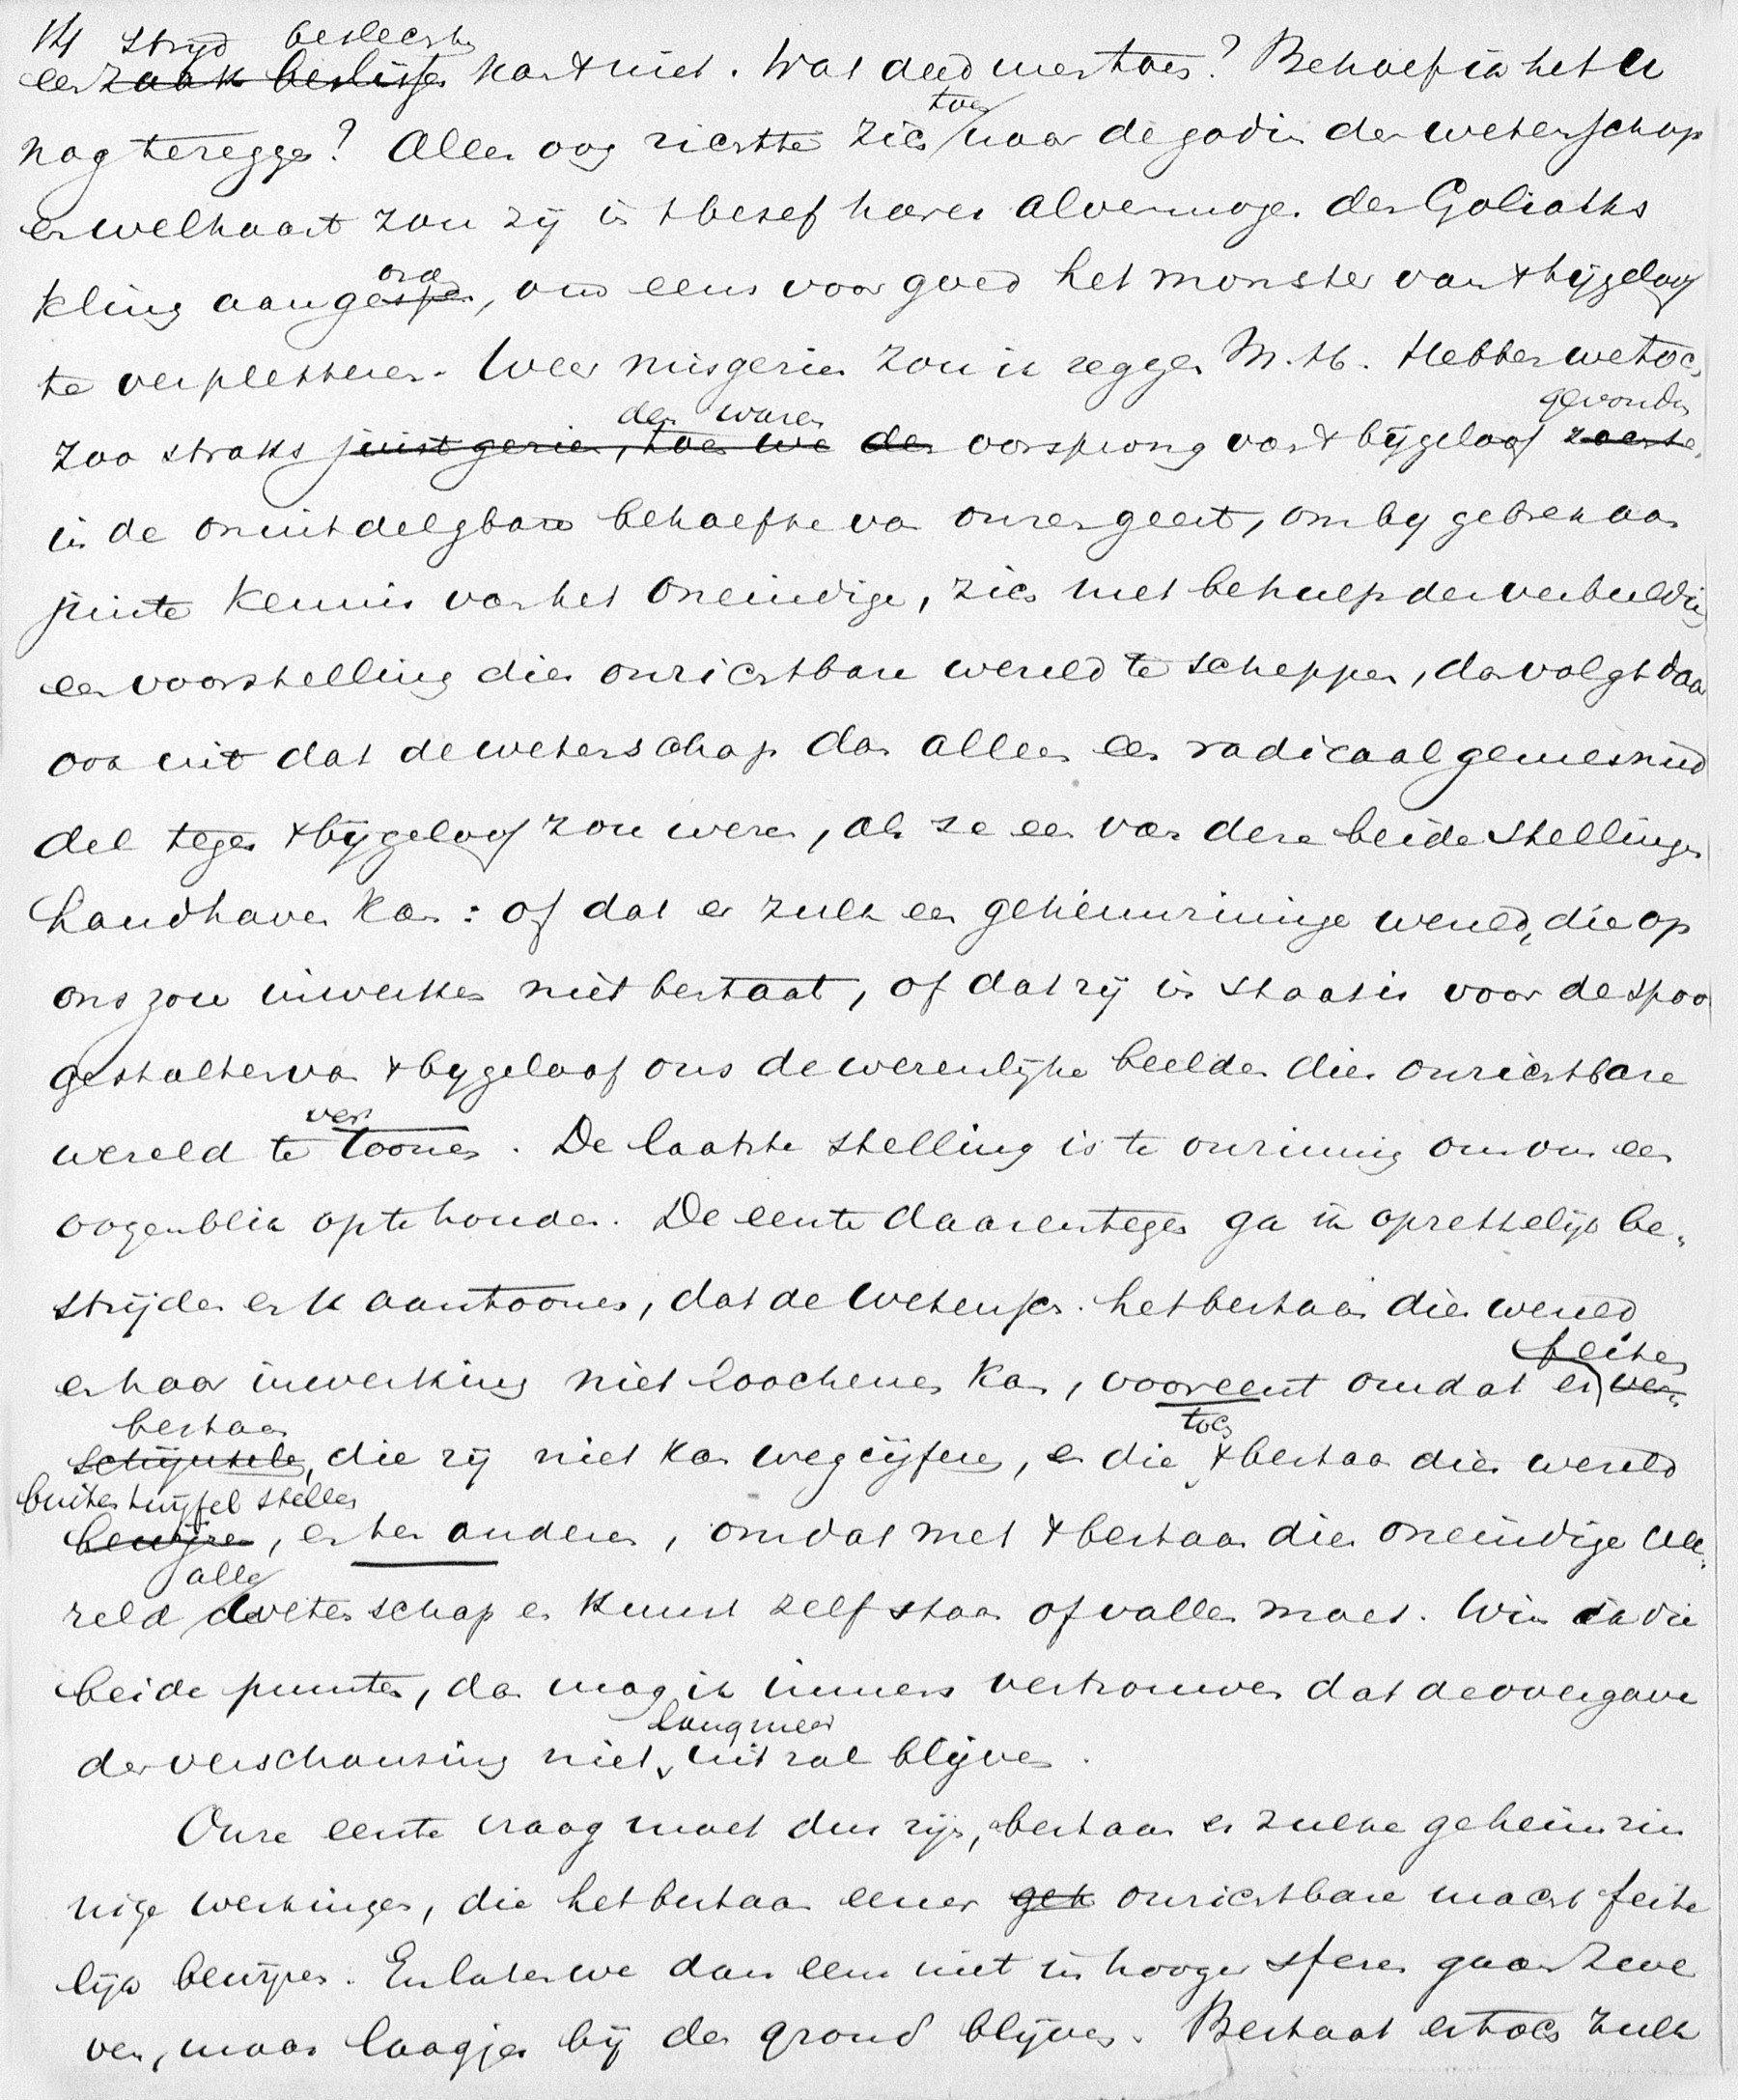 14 strijd beslechten
een zaak beslissen kan 't niet. Wat deed men toen? Behoef ik het u
toen
nog te zeggen? Aller oog richtte zich naar de godin der wetenschap
en welhaast zou zij in 't besef harer alvermogen der Goliaths
ord
kling aangespen, om eens voor goed het monster van 't bijgeloof
te verpletteren. Weer misgezien zou ik zeggen M.H. Hebben we toch
den waren gevonden
zoo straks juist gezien, toen we den oorsprong van 't bijgeloof zochten
in de onuitdelgbare behoefte van onzen geest, om by gebrek aan
juiste kennis van het oneindige, zich met behulp der verbeelding
een voorstelling dier onzichtbare wereld te scheppen, dan volgt daar
ook uit dat de wetenschap dan alleen een radicaal geneesmid
del tegen 't bijgeloof zou wezen, als ze een van deze beide stellingen
handhaven kan: of dat er zulk een geheimzinnige wereld, die op
ons zou inwerken niet bestaat, of dat zij in staat is voor de spoo
gestalten van 't bygeloof ons de wezenlijke beelden dier onzichtbare
ver
wereld te toonen. De laatste stelling is te onzinnig om ons een
oogenblik op te houden. De eerste daarentegen ga ik opzettelijk be„
strijden en U aantoonen, dat de wetensch. het bestaan dier wereld
feiten
en haar inwerking niet loochenen kan, vooreerst omdat er ver„
bestaan toch
schijnselen, die zij niet kan wegcijferen, en die 't bestaan dier wereld
buiten twijfel stellen
bewijzen, en ten anderen, omdat met 't bestaan dier oneindige we„
alle
reld de wetenschap en kunst zelf staan of vallen moet. Win ik die
beide punten, dan mag ik immers vertrouwen dat de overgave
lang meer
der verschansing niet uit zal blijven.
Onze eerste vraag moet dus zijn, bestaan er zulke geheimzin
nige werkingen, die het bestaan eener geh onzichtbare macht feite
lijk bewijzen. En laten we dan eens niet in hooger sferen gaan zwe
ven, maar laagjes bij den grond blijven. Bestaat er toch zulk